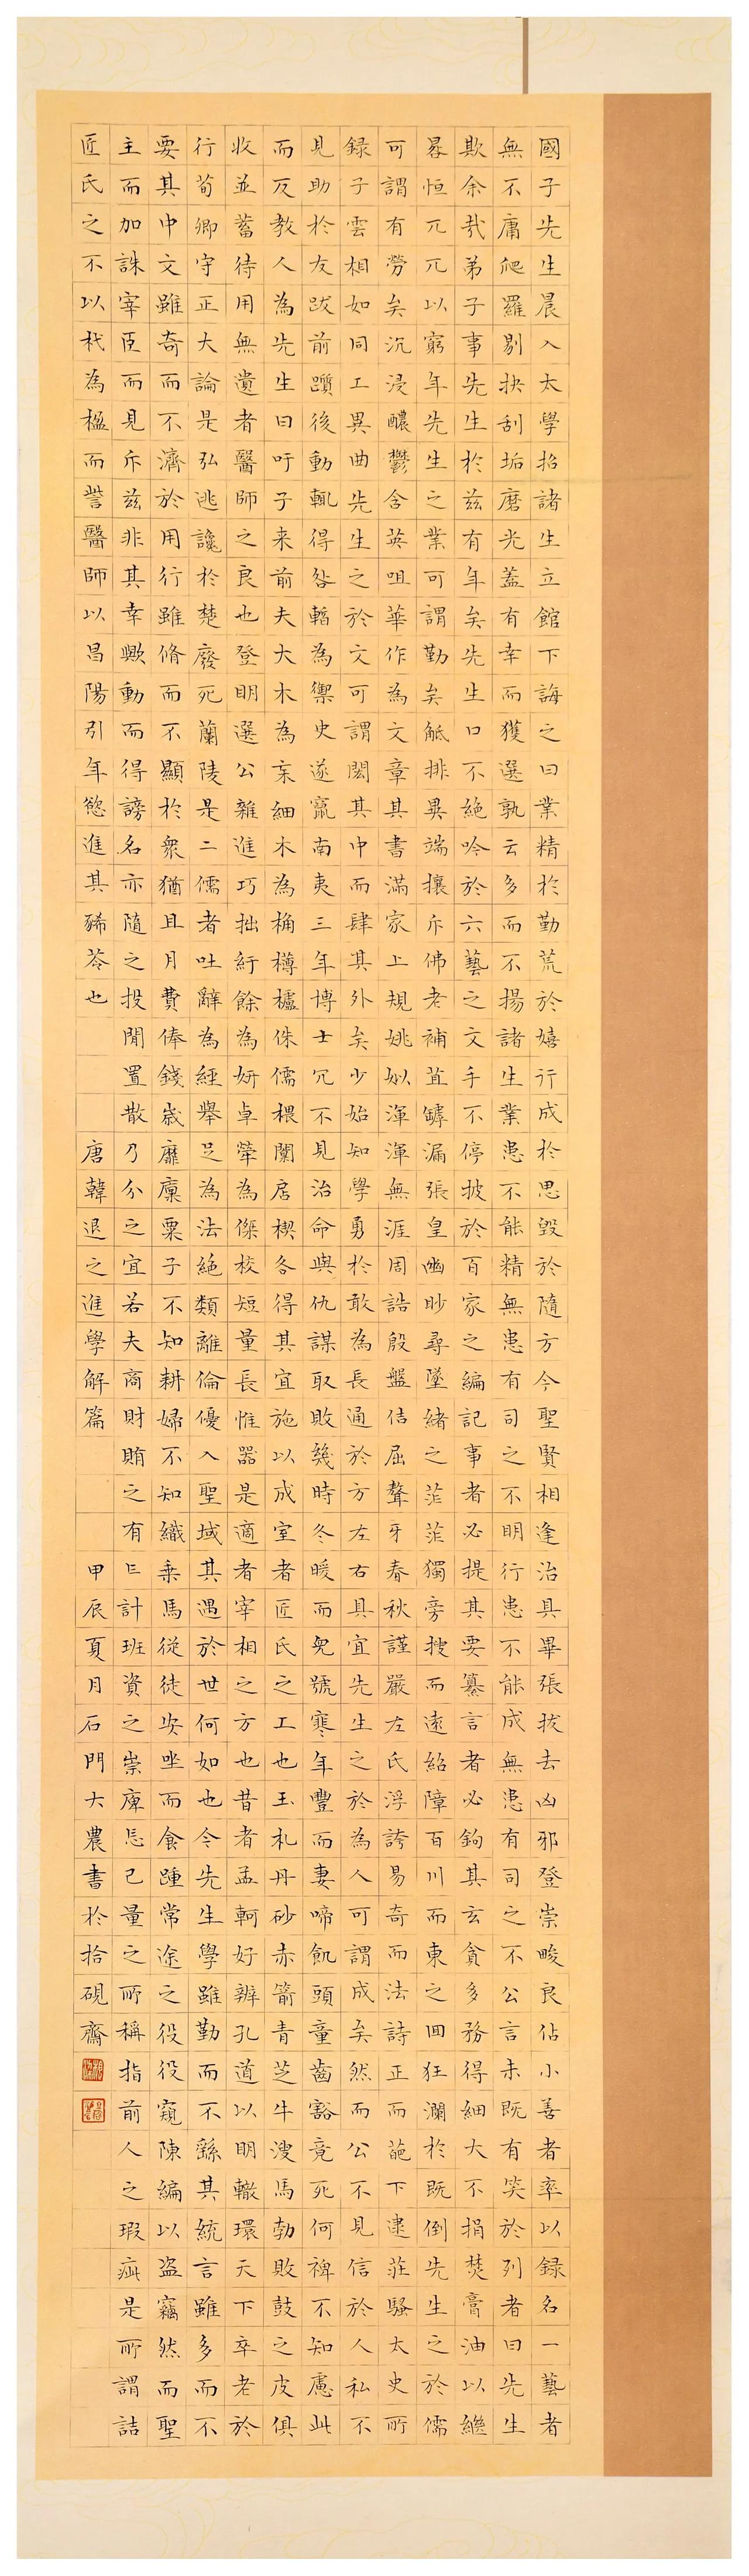 國子先生晨入太學招諸生立館下誨之曰業精於勤荒於嬉行成於思毀於隨方今聖賢相逢治具畢張拔去凶邪登崇畯良佔小善者率以録名一藝者
無不庸爬羅剔抉刮垢磨光蓋有幸而獲選孰云多而不揚諸生業患不能精無患有司之不明行患不能成無患有司之不公言未既有笑於列者曰先生
欺余哉弟子事先生於茲有年矣先生口不絕吟於六藝之文手不停披於百家之編記事者必提其要纂言者必鉤其玄貪多務得細大不捐焚膏油以繼
晷恒兀兀以窮年先生之業可謂勤矣觝排異端攘斥佛老補苴罅漏張皇幽眇尋墜緒之茫茫獨旁搜而遠紹障百川而東之回狂瀾於既倒先生之於儒
可謂有勞矣沉浸醲鬱含英咀華作為文章其書滿家上規姚姒渾渾無涯周誥殷盤佶屈聱牙春秋謹嚴左氏浮誇易奇而法詩正而葩下逮莊騷太史所
録子雲相如同工異曲先生之於文可謂閎其中而肆其外矣少始知學勇於敢為長通於方左右具宜先生之於為人可謂成矣然而公不見信於人私不
見助於友跋前躓後動輒得咎暫為禦史遂竄南夷三年博士冗不見治命與仇謀取敗幾時冬暖而兒號寒年豐而妻啼飢頭童齒豁竟死何裨不知慮此
而反教人為先生曰吁子来前夫大木為杗細木為桷欂櫨侏儒椳闑扂楔各得其宜施以成室者匠氏之工也玉札丹砂赤箭青芝牛溲馬勃敗鼓之皮俱
收並蓄待用無遺者醫師之良也登明選公雜進巧拙紆餘為妍卓犖為傑校短量長惟器是適者宰相之方也昔者孟軻好辨孔道以明轍環天下卒老於
行荀卿守正大論是弘逃讒於楚廢死蘭陵是二儒者吐辭為經舉足為法絕類離倫優入聖域其遇於世何如也今先生學雖勤而不繇其統言雖多而不
要其中文雖奇而不濟於用行雖脩而不顯於衆猶且月費俸錢歲靡廩粟子不知耕婦不知織乘馬從徒安坐而食踵常途之役役窺陳編以盜竊然而聖
主而加誅宰臣而見斥茲非其幸歟動而得謗名亦隨之投閒置散乃分之宜若夫商財賄之有亡計班資之崇庳忘己量之所稱指前人之瑕疵是所謂詰
匠氏之不以杙為楹而訾醫師以昌陽引年慾進其豨苓也 唐韓退之進學解篇 甲辰夏月石門大農書於拾硯齋